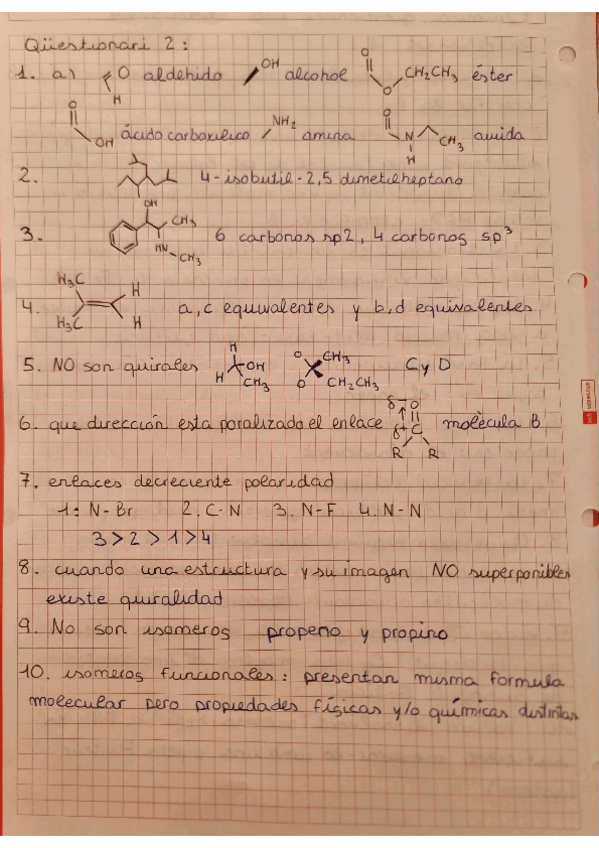 Qüestionari 2:
1. a) O H aldehido OH alcohol O O CH2CH3 éster
O OH ácido carboxílico NH2 amina O N H CH3 amida
2. 4-isobutil-2,5 dimetilheptano
3. OH CH3 HN CH3 6 carbonos sp2, 4 carbonos sp3
4. H3C H3C H H a,c equivalentes y b,d equivalentes
5. NO son quirales H H OH CH3 O O CH3 CH2CH3 C y D
6. que dirección esta poralizado el enlace δ- O δ+ C R R molècula B
7. enlaces decreciente polaridad
1: N-Br 2. C-N 3. N-F 4. N-N
3 > 2 > 1 > 4
8. cuando una estructura y su imagen NO superponibles
existe quiralidad
9. No son isomeros propeno y propino
10. isomeros funcionales: presentan misma formula
molecular pero propiedades físicas y/o químicas distintas